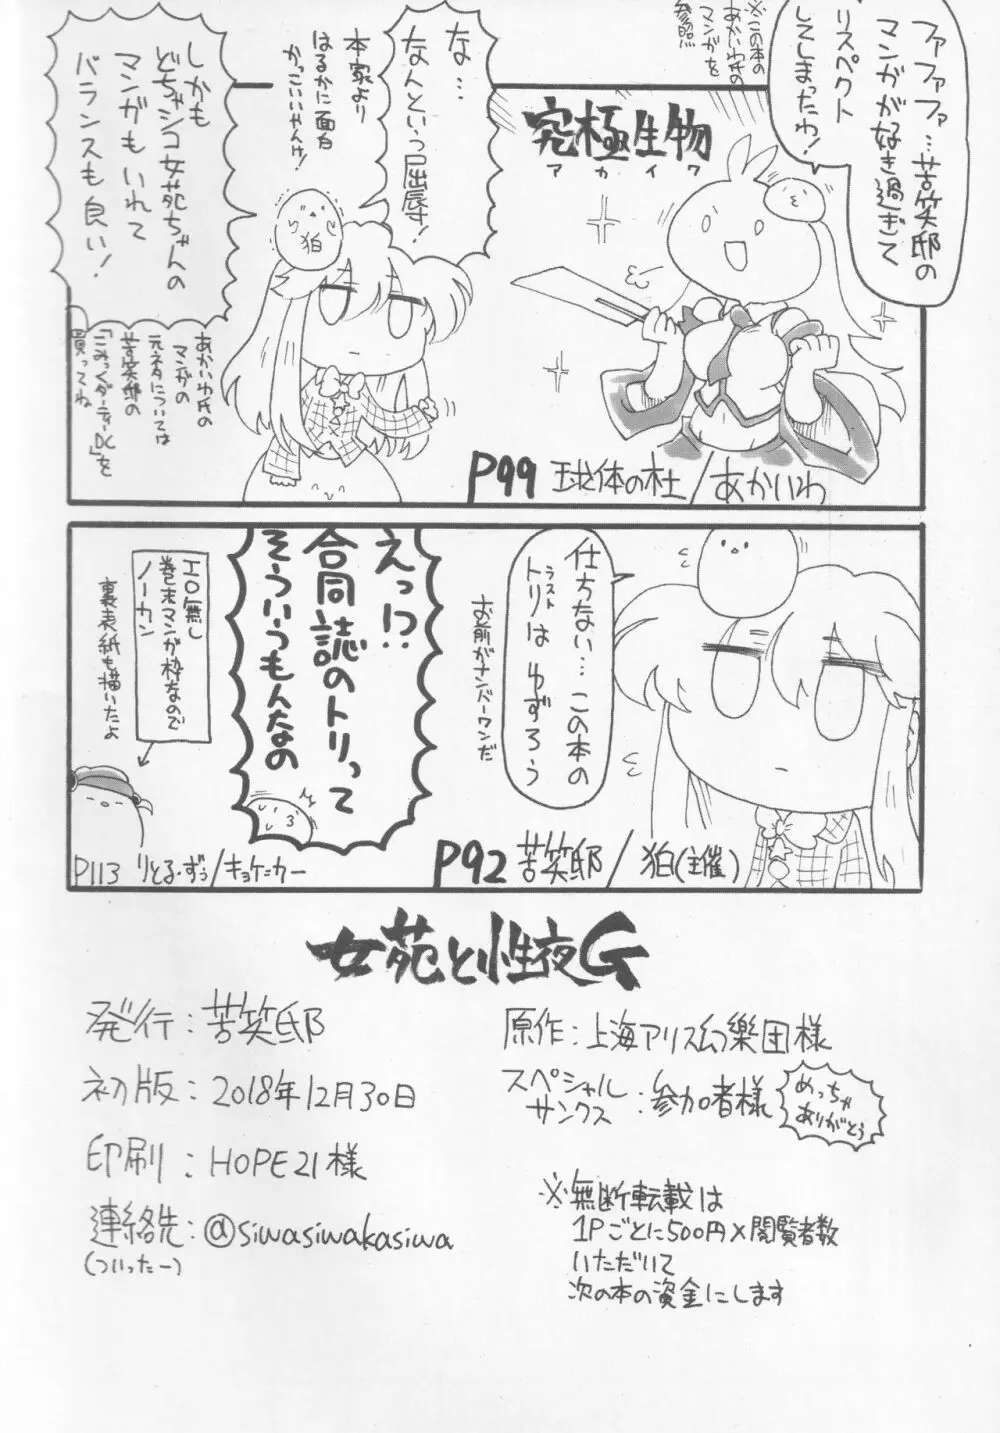 ファファファ…苦笑邸の
マンガが好き過ぎて
リスペクト
してしまったわ!
※この本の
あかいわ氏の
マンガを
参照
究極生物
アカイワ
な…
なんという屈辱!
本家より
はるかに面白
かっこいいやんけ!
狛
しかも
どちゃシコ女苑ちゃんの
マンガもいれて
バランスも良い!
あかいわ氏の
マンガの
元ネタについては
苦笑邸の
「こみっくダーティーDC」を
買ってね
P99 球体の杜/あかいわ
仕方ない…この本の
トリはゆずろう
ラスト
お前がナンバーワンだ
えっ!?
合同誌のトリって
そういうもんなの
エロ無し
巻末マンガ枠なので
ノーカン
裏表紙も描いたよ
P92 苦笑邸/狛(主催)
P113 りとる・ずぅ/キョケニカー
女苑と性夜G
発行:苦笑邸
初版:2018年12月30日
印刷:HOPE21様
連絡先:@siwasiwakasiwa
(ついったー)
原作:上海アリス幻樂団様
スペシャル
サンクス:参加者様
めっちゃ
ありがとう
※無断転載は
1Pごとに500円×閲覧者数
いただいて
次の本の資金にします